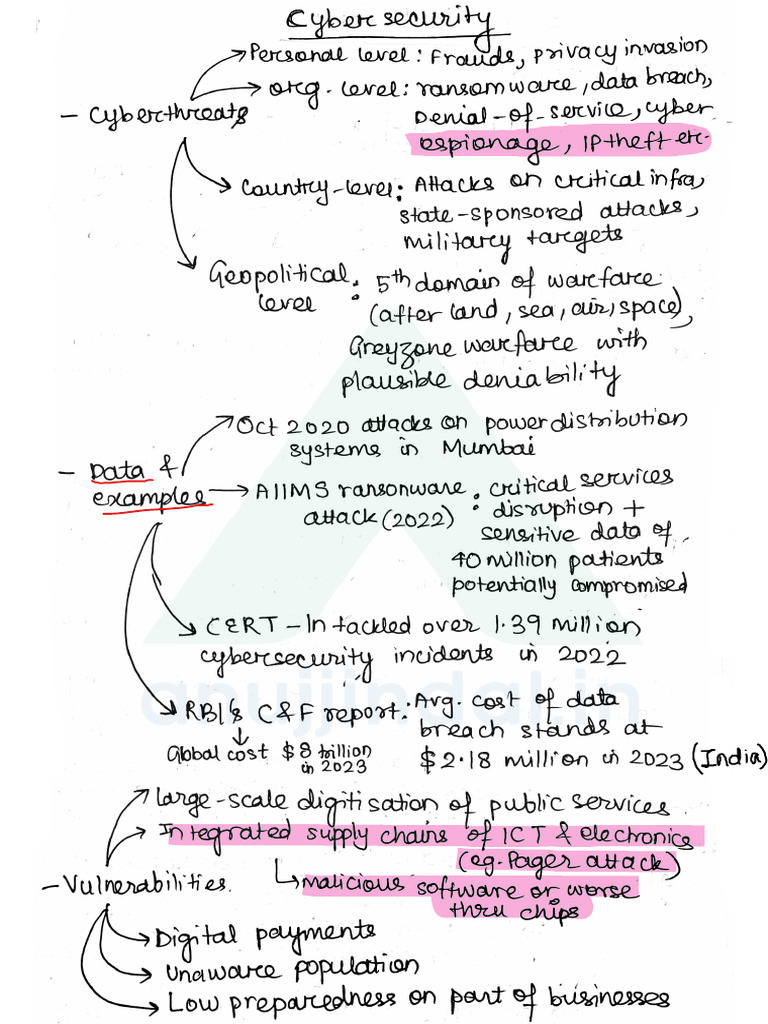 Cybersecurity
→ Personal level: Frauds, privacy invasion
→ org. level: ransomware, data breach,
- Cyberthreats
Denial-of-service, cyber
espionage, IP theft etc.
→ Country-level: Attacks on critical infra,
state-sponsored attacks,
military targets
→ Geopolitical level: 5th domain of warfare
(after land, sea, air, space),
Greyzone warfare with
plausible deniability
→ Oct 2020 attacks on power distribution
systems in Mumbai
- Data &
examples → AIIMS ransonware : critical services
attack (2022) disruption +
sensitive data of
40 million patients
potentially compromised
→ CERT-In tackled over 1.39 million
cybersecurity incidents in 2022
anujjindal.in
→ RBI's C&F report: Avg. cost of data
breach stands at
↓
Global cost $8 trillion
in 2023
$2.18 million in 2023 (India)
→ large-scale digitisation of public services
→ Integrated supply chains of ICT & electronics
(eg. Pager attack)
- Vulnerabilities.
↳ malicious software or worse
thru chips
→ Digital payments
→ Unaware population
→ Low preparedness on part of businesses